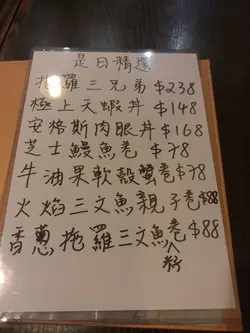 是日精選
拖羅三兄弟$238
極上天蝦丼$148
安格斯肉眼丼$168
芝士鰻魚卷$78
牛油果軟殼蟹卷$78
火焰三文魚親子卷$88
香蔥拖羅三文魚卷$88